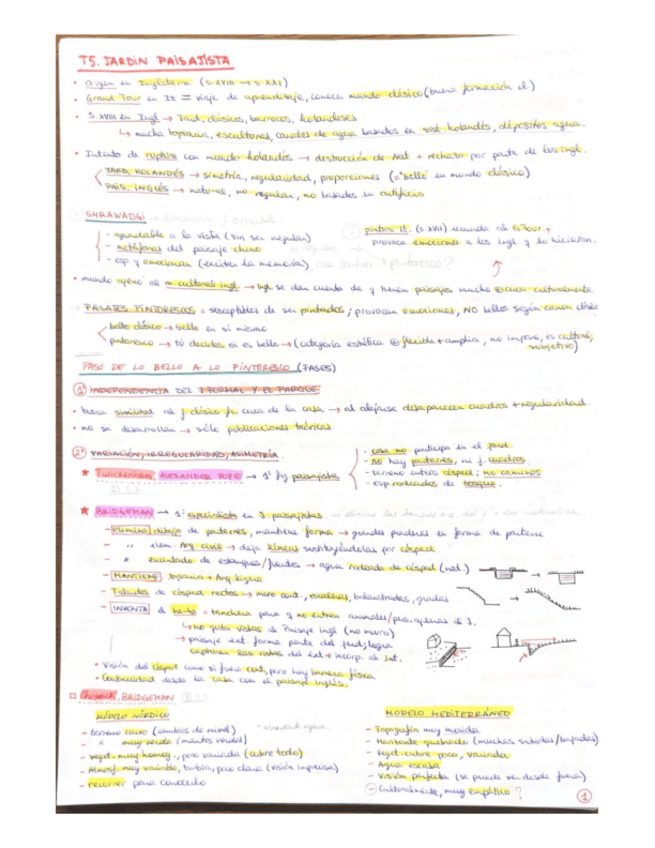 T5. JARDÍN PAISAJISTA
• Origen en Inglaterra (s. XVIII → s. XXI)
• Grand Tour en It = viaje de aprendizaje, conocen mundo clásico (buena formación él)
• S. XVIII en Ingl → Jard. clásicos, barrocos, holandeses
↳ mucha topiaria, esculturas, canales de agua basados en nat. holandés, depósitos agua.
• Intento de ruptura con mundo holandés → destrucción de Nat + rechazo por parte de los ingl.
JARD. HOLANDÉS → simetría, regularidad, proporciones (="bello" en mundo clásico)
PAIS. INGLÉS → natural, no regular, no basados en artificio
SHRAWADGI
- agradable a la vista (sin ser regular)
- metáforas del paisaje chino
- esp q emocionan (excitan la memoria)
pintura it. (s. XVII) recuerda al GTour +
provoca emociones a los ingl y lo hicieron.
• mundo ajeno al m. cultural ingl. → ingl se dan cuenta de q tienen paisajes mucho cerca culturalmente
PAISAJES PINTORESCOS = susceptibles de ser pintados; provocan emociones, NO bellos según canon clásico
bello clásico → bello en sí mismo
pintoresco → tú decides si es bello → (categoría estética ⊕ flexible + amplia, no impone, es cultural, subjetivo)
PASO DE LO BELLO A LO PINTORESCO (FASES)
① INDEPENDENCIA DEL J FORMAL Y EL PARQUE
• busca similitud al j clásico cerca de la casa → al alejarse desaparecen cuadros + regularidad.
• no se desarrollan → sólo publicaciones teóricas
② VARIACIÓN, IRREGULARIDAD, ASIMETRÍA
★ Twickenham, ALEXANDER POPE → 1ª fig paisajista
- casa no participa en el jard.
- no hay parterres, ni j. cuadros
- terreno entero césped; no caminos
- esp. rodeados de bosque.
★ BRIDGEMAN → 1º especialista en J. paisajistas.
- Elimina dibujo de parterres, mantiene forma → grandes praderas en forma de parterre
- " elem. Arq. civil → deja líneas sustituyéndolas por césped.
- " encintado de estanques/fuentes → agua rodeada de césped (nat.)
- MANTIENE topiaria + Arq. ligera
- Taludes de césped rectos → muro cont., escaleras, balaustradas, gradas
- INVENTA el ha-ha = trinchera para q no entren animales/pers. ajenas al J.
↳ no quita vistas de Paisaje Ingl (no muro)
→ paisaje ext. forma parte del jard; logra
capturar las vistas del ext + incorp. al Int.
• Visión del césped como si fuera cont, pero hay barrera física
• Continuidad desde la casa con el paisaje inglés.
□ Chiswick, BRIDGEMAN
MODELO NÓRDICO
- terreno curvo (cambios de nivel)
- " muy verde (mantos verdes)
- veget. muy homog., poco variada (cubre todo)
- Atmosf. muy variable, turbia, poco clara (visión imprecisa)
- recorrer para conocerlo
- abundante agua
MODELO MEDITERRÁNEO
- Topografía muy movida
- Horizonte quebrado (muchas subidas/bajadas)
- Veget. cubre poco, variada
- Agua escasa
- Visión perfecta (se puede ver desde fuera)
- Culturalmente, muy empático ?
①